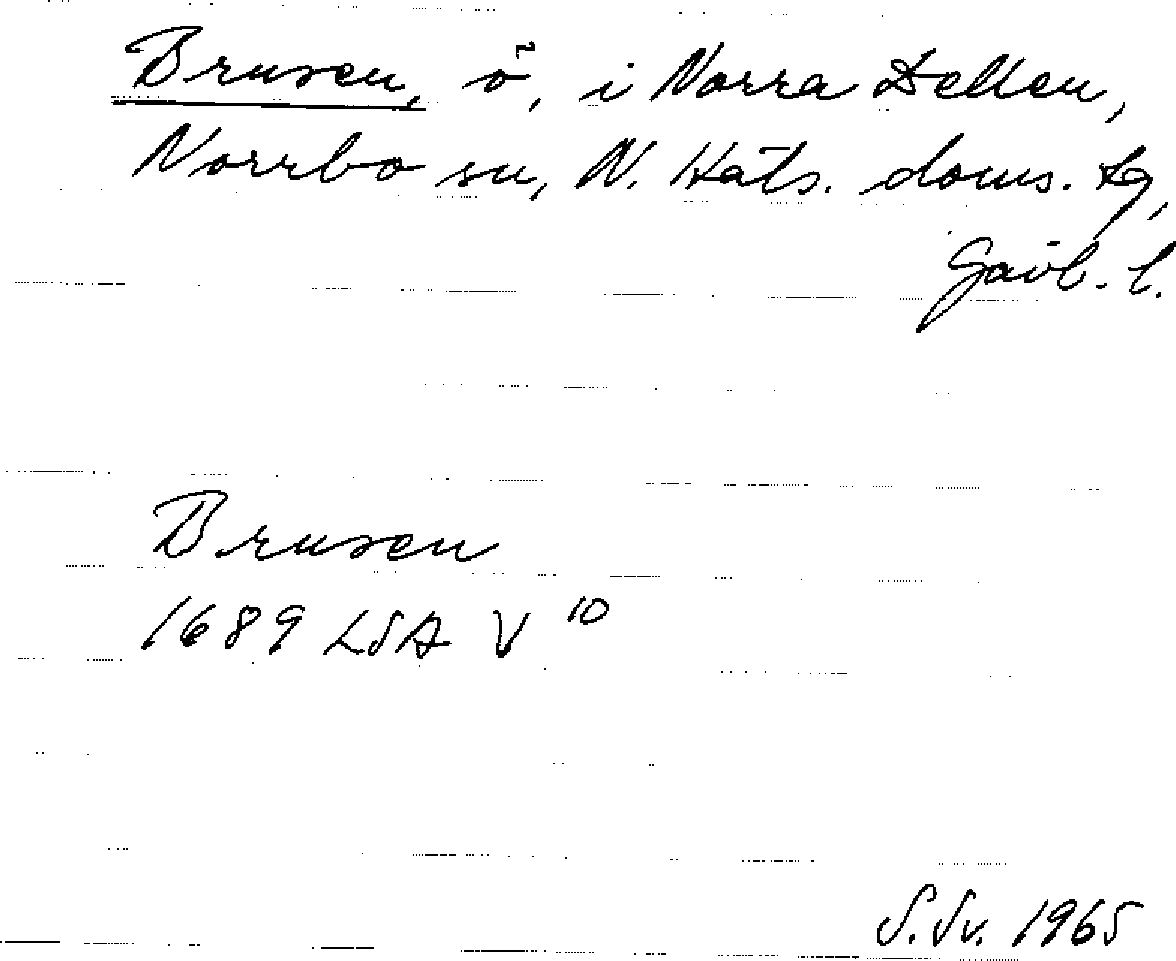 Brusen, ö, i Norra Dellen,
Norrbo sn, N. Häls. doms. tg,
Gävl. l.
Brusen
1689 LSA V 10
S. Sv. 1965